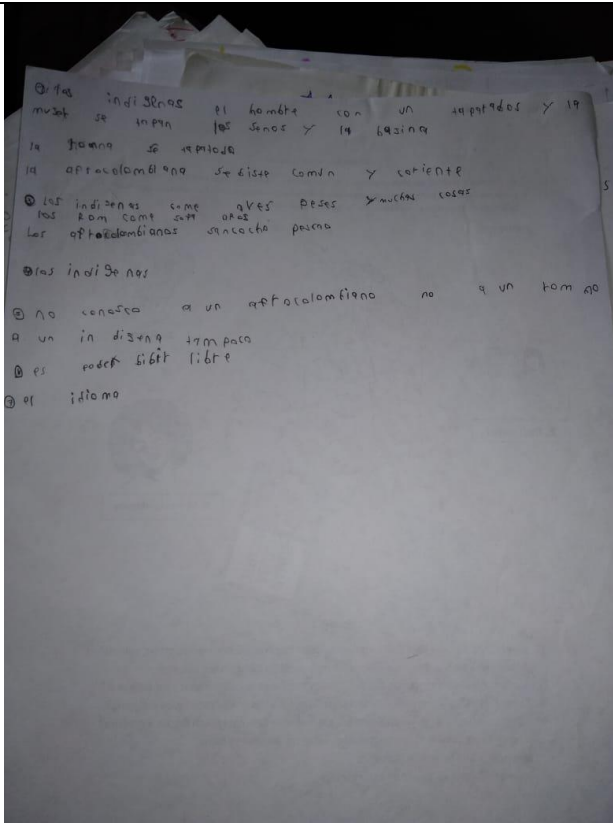 los indigenas el hombre con un taparabos y la
muser se tapan los senos y la basina
la homna se tapatoda
la afrocolombiana se biste comun y coriente
los indigenas come aves peses y muchas cosas
los Rom come
Los afrocolombianos sancocho pescao
los indigenas
no conosco a un afrocolombiano no a un rom no
a un indigena tampoco
es poder bibir libre
el idioma